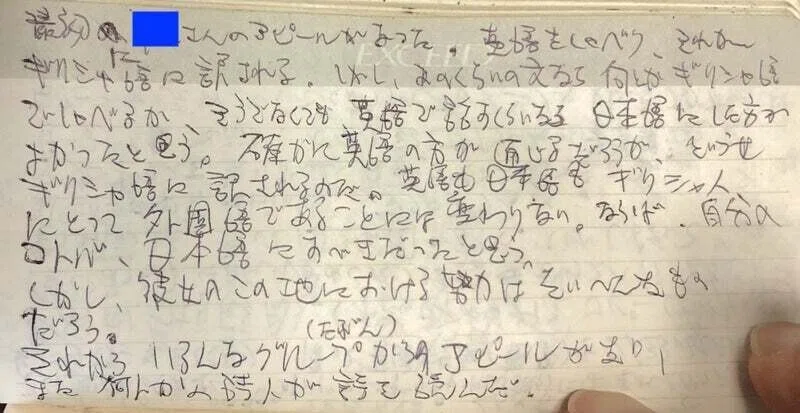 最初に、さんのアピールがあった。英語をしゃべり、それが
ギリシャ語に訳される。しかし、あのくらいの文なら何とかギリシャ語
でしゃべるか、そうでなくても英語で話すくらいなら日本語にした方が
よかったと思う。確かに英語の方が通じるだろうが、どうせ
ギリシャ語に訳されるのだ。英語も日本語もギリシャ人
にとって外国語であることには変わりない。ならば、自分の
コトバ、日本語にすべきだったと思う。
しかし、彼女のこの地における努力はたいへんなもの
だろう。(たぶん)
それから、いろんなグループからのアピールがあり、
また何人かの詩人が詩を読んだ。